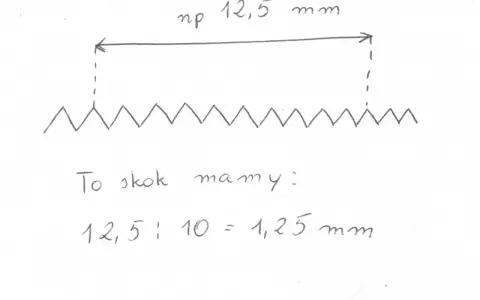 np 12,5 mm
To skok mamy:
12,5 : 10 = 1,25 mm